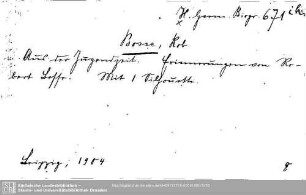 H. Germ. Biogr. 671
Bosse, Rob
Aus der Jugendzeit. Erinnerungen von Ro-
bert Bosse. Mit 1 Silhouette.
Leipzig, 1904
8
Sächsische Landesbibliothek -
Staats- und Universitätsbibliothek Dresden